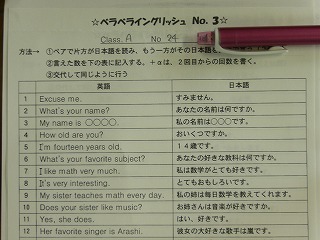 ☆ペラペライングリッシュ No. 3☆
Class. A No. 24
方法→ ①ペアで片方が日本語を読み、もう一方がその日本語を
②言えた数を下の表に記入する。+αは、2回目からの回数を書く。
③交代して同じように行う
英語 日本語
1 Excuse me. すみません。
2 What's your name? あなたの名前は何ですか。
3 My name is 〇〇〇〇. 私の名前は〇〇〇です。
4 How old are you? おいくつですか。
5 I'm fourteen years old. 14歳です。
6 What's your favorite subject? あなたの好きな教科は何ですか。
7 I like math very much. 私は数学がとても好きです。
8 It's very interesting. とてもおもしろいです。
9 My sister teaches math every day. 私の姉は毎日数学を教えてくれます。
10 Does your sister like music? お姉さんは音楽が好きですか。
11 Yes, she does. はい、好きです。
12 Her favorite singer is Arashi. 彼女の大好きな歌手は嵐です。